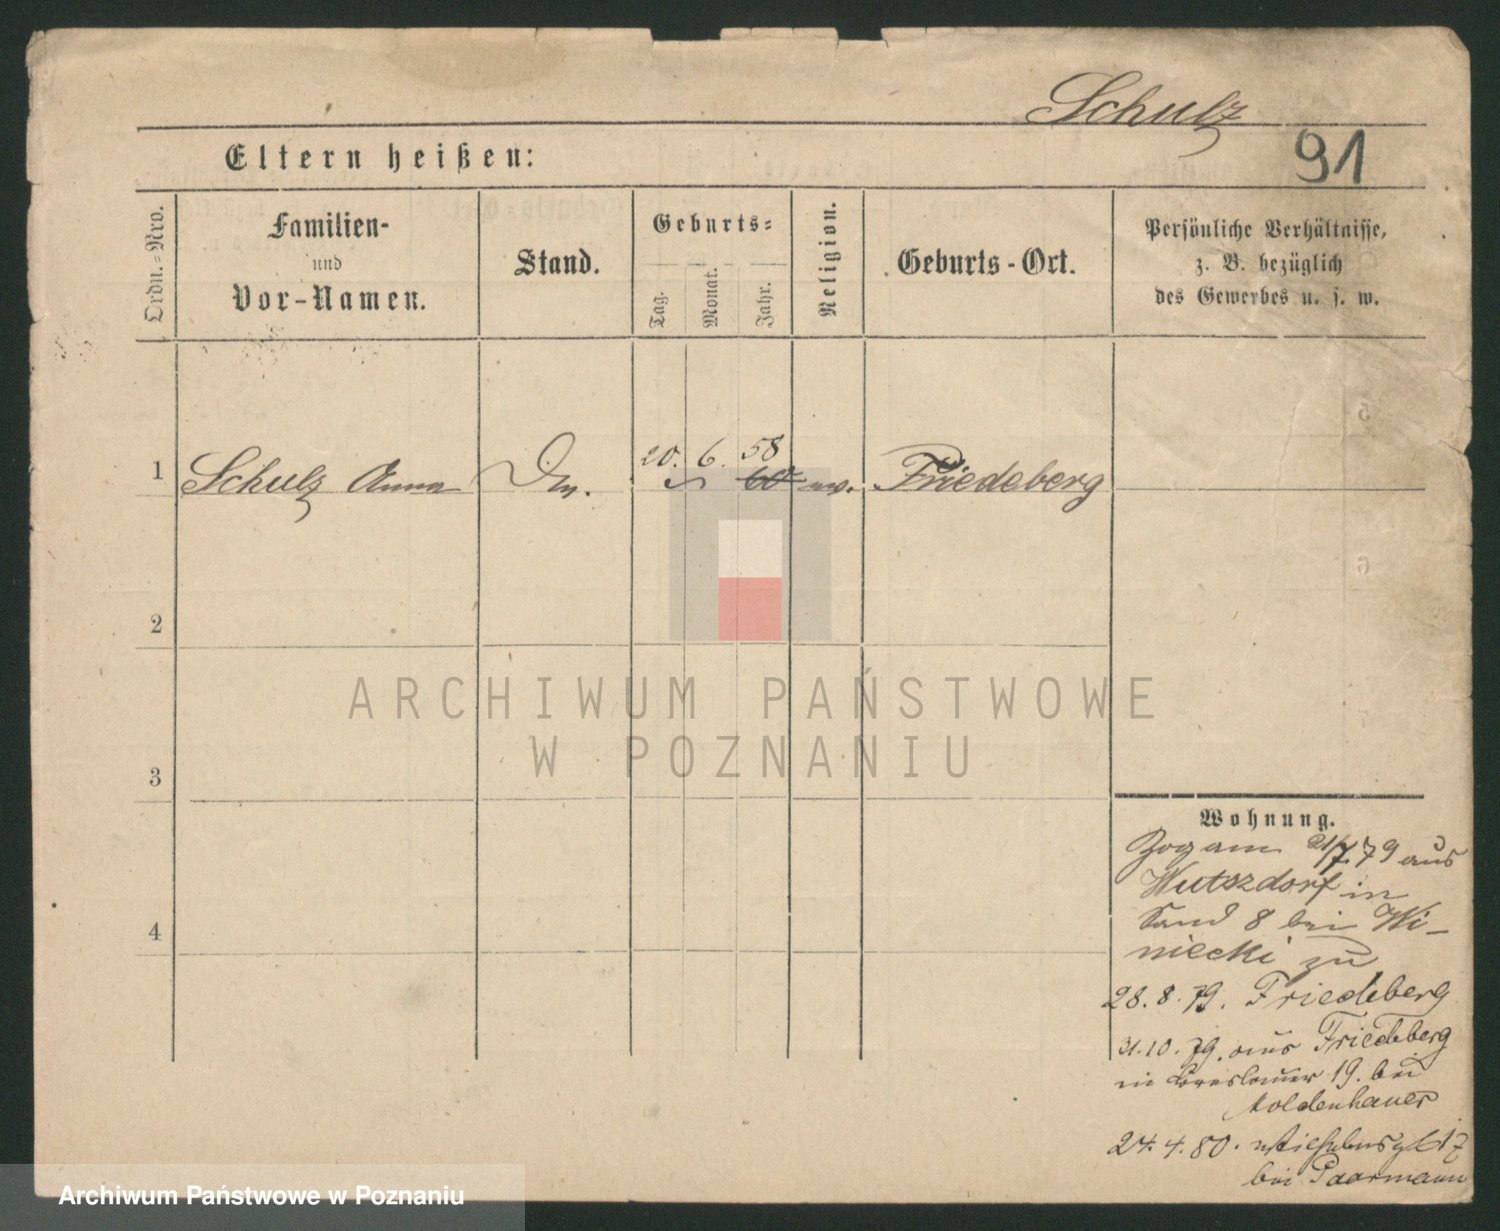 Schulz
91
Eltern heißen:
Ordn.=Nro.
Familien-
und
Vor-Namen.
Stand.
Geburts=
Tag.
Monat.
Jahr.
Religion.
Geburts-Ort.
Persönliche Verhältnisse,
z. B. bezüglich
des Gewerbes u. s. w.
20. 6. 58
1 Schulz Anna 60 ev. Friedeberg
2
3
4
Wohnung.
Zog am 21/7.79 aus
Wutszdorf in
Sand 8 bei Wi-
niecki zu
28. 8. 79. Friedeberg
31.10.79. aus Friedeberg
in Breslauer 19. bei
Moldenhauer
24.4.80.
bei Paarmann
ARCHIWUM PAŃSTWOWE
W POZNANIU
Archiwum Państwowe w Poznaniu